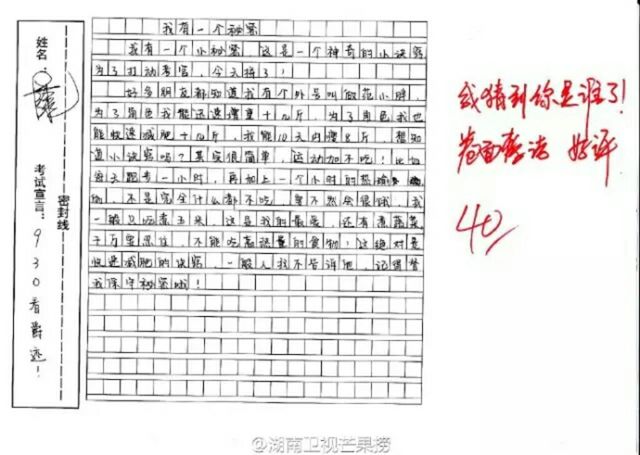 姓名:
考试宣言:930看爵迹!
密封线
我有一个秘密
我有一个小秘密,这是一个神奇的小诀窍,
为了打动考官,今天拼了!
好多朋友都知道我有个外号叫做范小胖,
为了角色我能迅速增重十几斤,为了角色我也
能快速减肥十几斤,我能10天内瘦8斤,想知
道小诀窍吗?其实很简单,运动加不吃!比如
每天跑步一小时,再加上一个小时的瑜
伽,不是完全什么都不吃,要不然会很饿,我
一般只吃煮玉米,这是我的最爱,还有煮蔬菜
千万要忍住,不能吃高热量的食物!这绝对是
快速减肥的诀窍,一般人我不告诉他,记得替
我保守秘密哦!
我猜到你是谁了!
卷面整洁 好评
40
@湖南卫视芒果捞